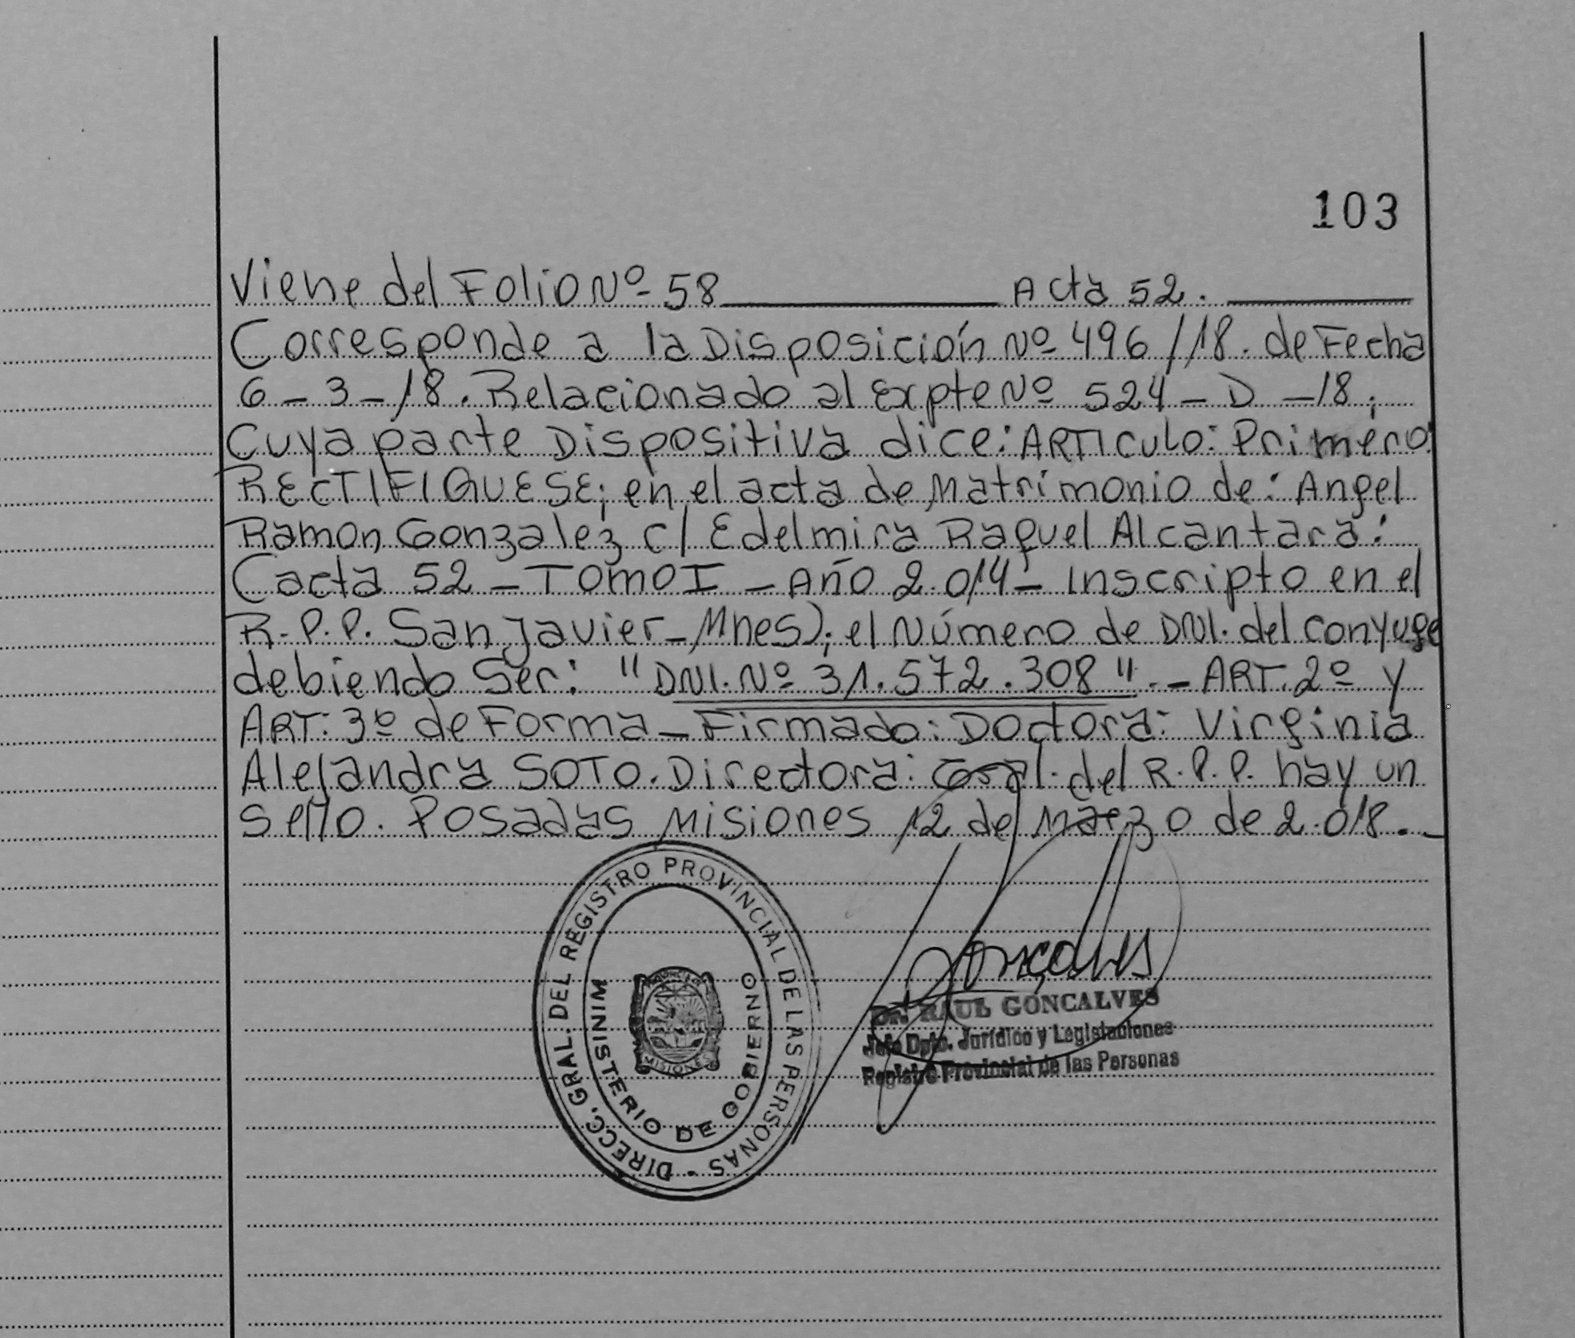 103
Viene del Folio Nº 58 Acta 52.
Corresponde a la Disposición Nº 496/18. de Fecha
6-3-18. Relacionado al Expte Nº 524-D-18;
Cuya parte Dispositiva dice: ARTICULO: Primero:
RECTIFIQUESE; en el acta de Matrimonio de: Angel
Ramon Gonzalez c/ Edelmira Raquel Alcantara:
(acta 52 - TOMO I - Año 2.014 - Inscripto en el
R.P.P. San Javier - Mnes); el Número de DNI. del conyuge
debiendo Ser: "DNI. Nº 31.572.308". - ART. 2º y
ART: 3º de Forma - Firmado: Doctora: Virginia
Alejandra SOTO. Directora: Gral. del R.P.P. hay un
sello. Posadas Misiones 12 de Marzo de 2.018. -
DIRECC. GRAL. DEL REGISTRO PROVINCIAL DE LAS PERSONAS -
MINISTERIO DE GOBIERNO
MISIONES
Goncalves
Dr. RAUL GONCALVES
Jefe Dpto. Jurídico y Legislaciones
Registro Provincial de las Personas